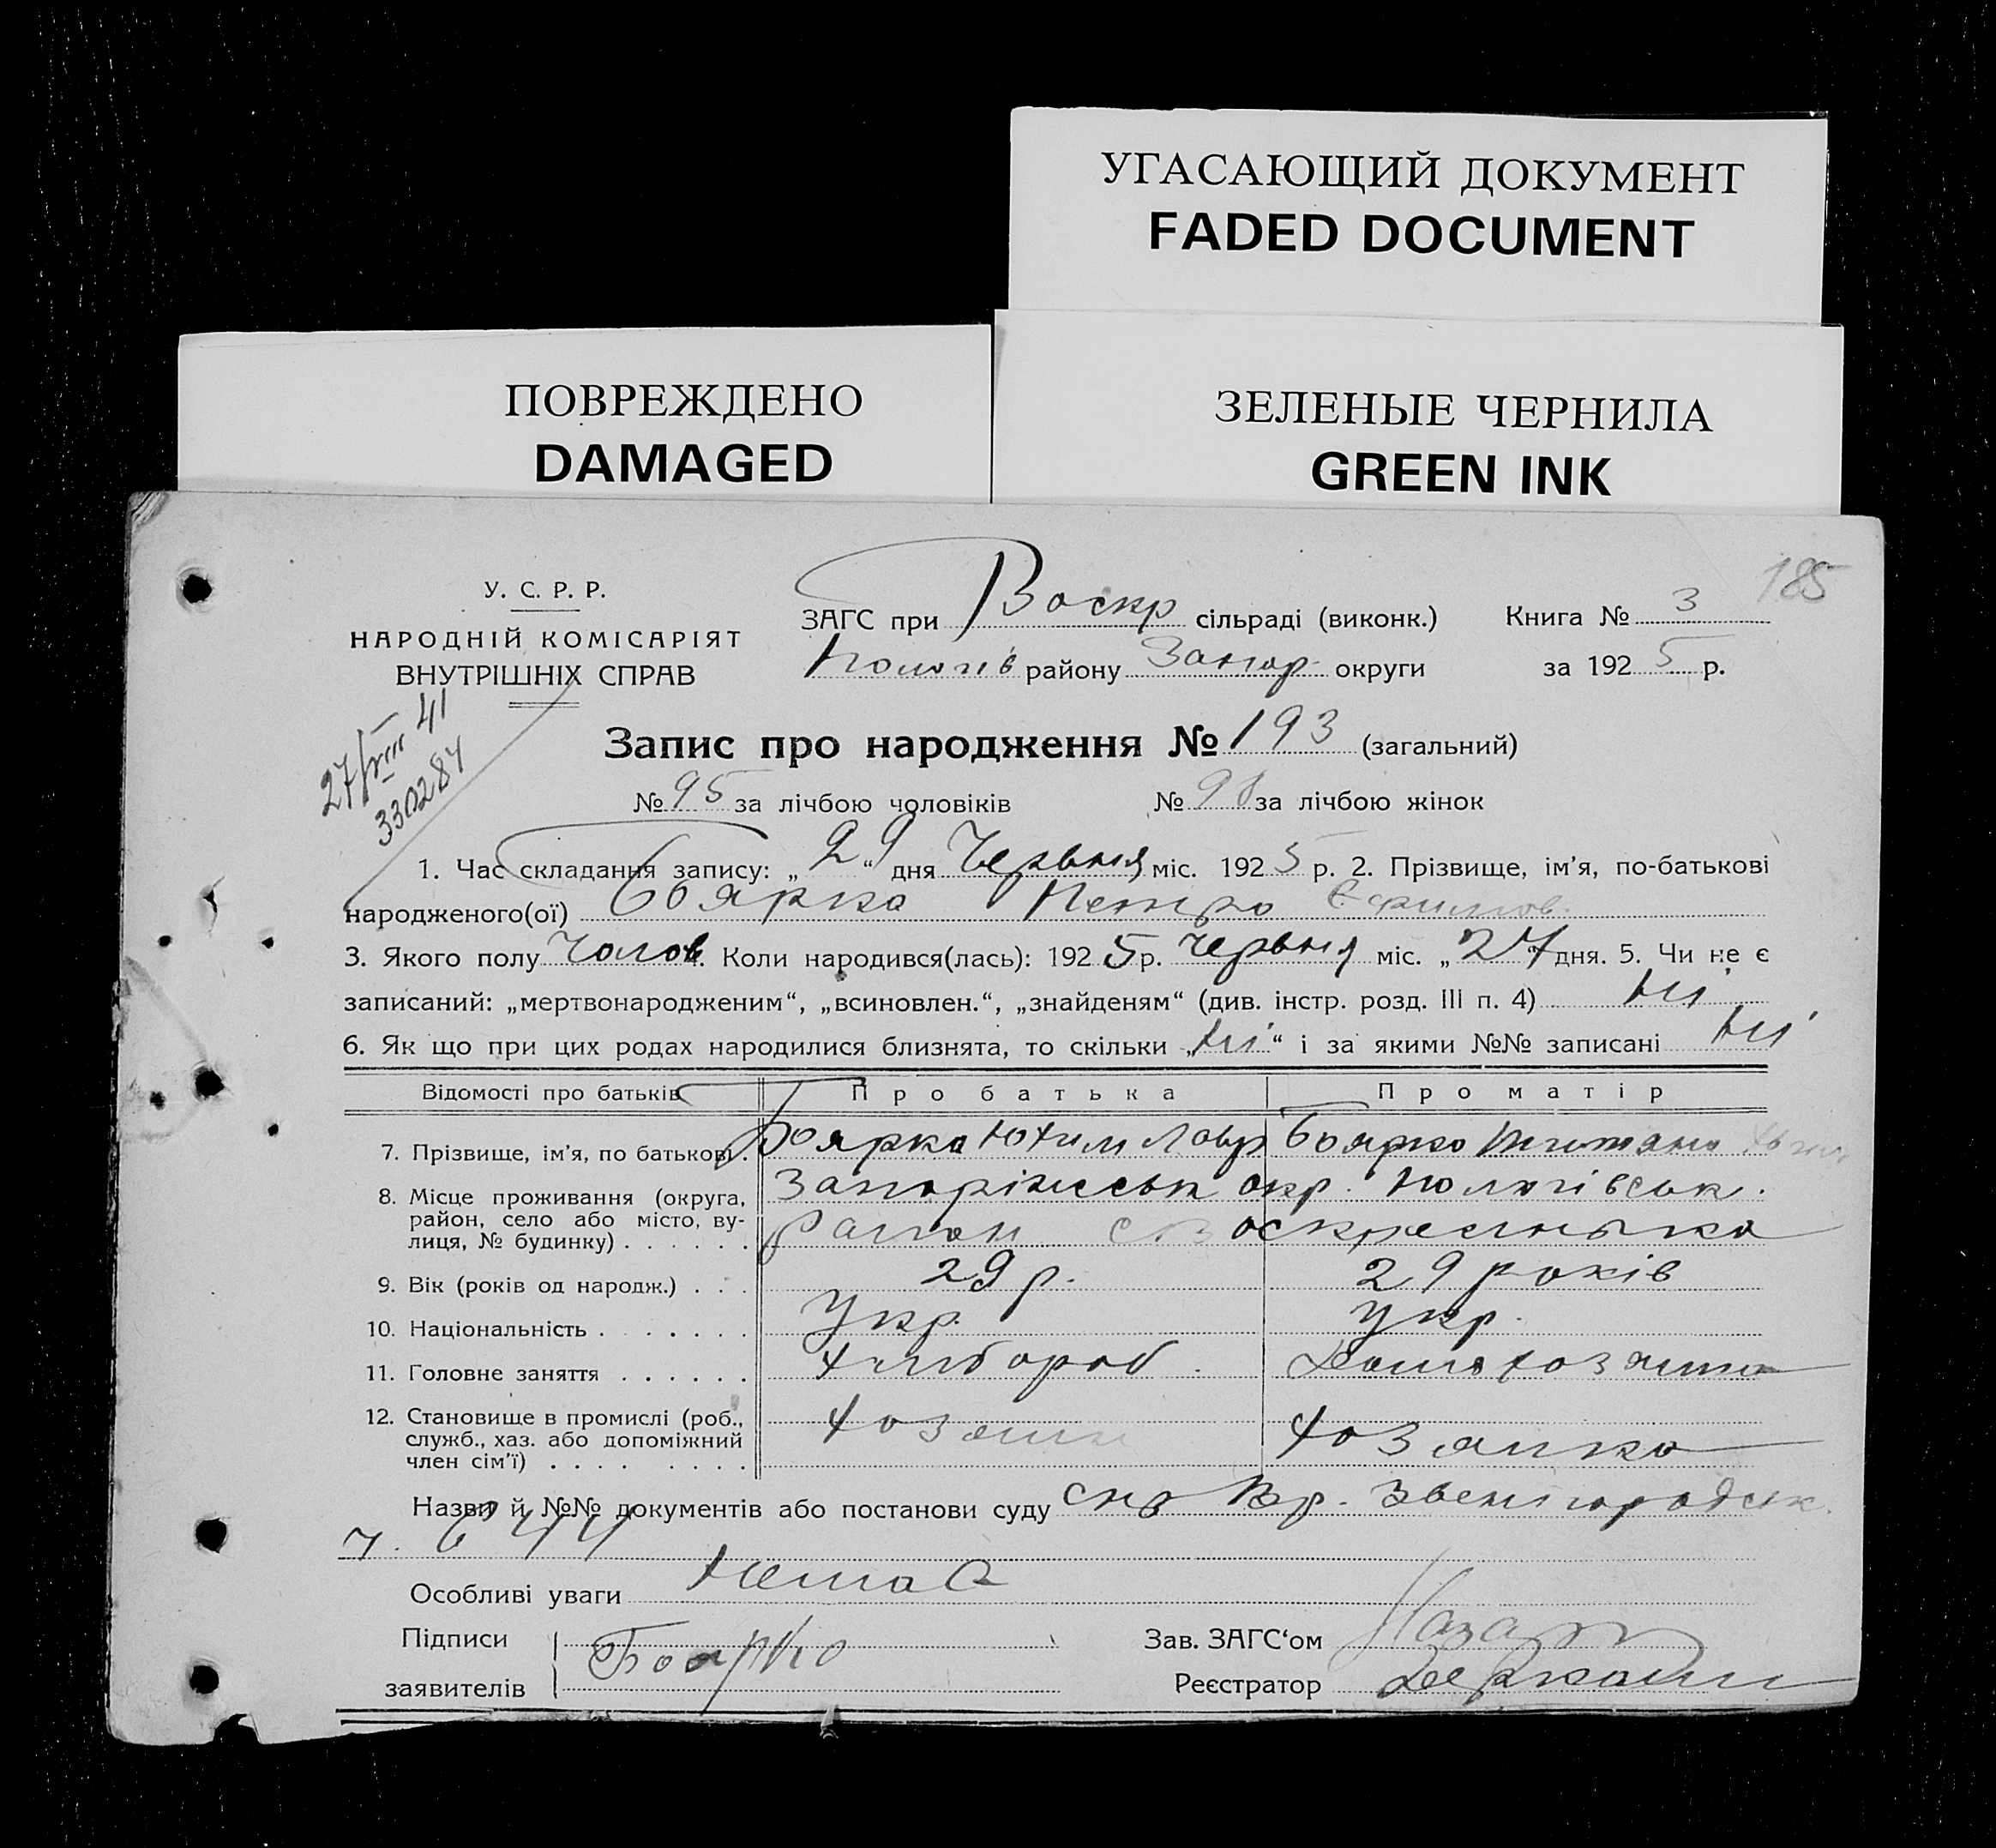 УГАСАЮЩИЙ ДОКУМЕНТ
FADED DOCUMENT
ПОВРЕЖДЕНО
DAMAGED
ЗЕЛЕНЫЕ ЧЕРНИЛА
GREEN INK
185
У. С. Р. Р.
НАРОДНІЙ КОМІСАРІЯТ
ВНУТРІШНІХ СПРАВ
ЗАГС при Воскр сільраді (виконк.) Книга № 3
Пологів району Запор. округи за 1925 р.
27/VIII 41
330284
Запис про народження № 193 (загальний)
№ 95 за лічбою чоловіків № 98 за лічбою жінок
1. Час складання запису: „29“ дня Червня міс. 1925 р. 2. Прізвище, ім’я, по-батькові
народженого(ої) Боярко Петро Єфимов.
3. Якого полу Чолов. Коли народився(лась): 1925 р. Червня міс. „27 дня. 5. Чи не є
записаний: „мертвонародженим“, „всиновлен.“, „знайденям“ (див. інстр. розд. III п. 4) ні
6. Як що при цих родах народилися близнята, то скільки „ні“ і за якими №№ записані ні
Відомості про батьків Про батька Про матір
7. Прізвище, ім’я, по батькові . Боярко Юхим Лавр Боярко Титяна
8. Місце проживання (округа, Запоріжськ окр. Пологівськ.
район, село або місто, ву- район с Воскресенька
лиця, № будинку) . . . . . .
9. Вік (років од народж.) . . . 29 р. 29 років
10. Національність . . . . . . . Укр. Укр.
11. Головне заняття . . . . . . хлібороб. Домохозяйка
12. Становище в промислі (роб., хозяин хозяйка
служб., хаз. або допоміжний
член сім’ї) . . . . . . . .
Назви й №№ документів або постанови суду Звенігородск.
ч. 644
Особливі уваги Немає
Підписи
заявителів Боярко
Зав. ЗАГС‘ом
Реєстратор